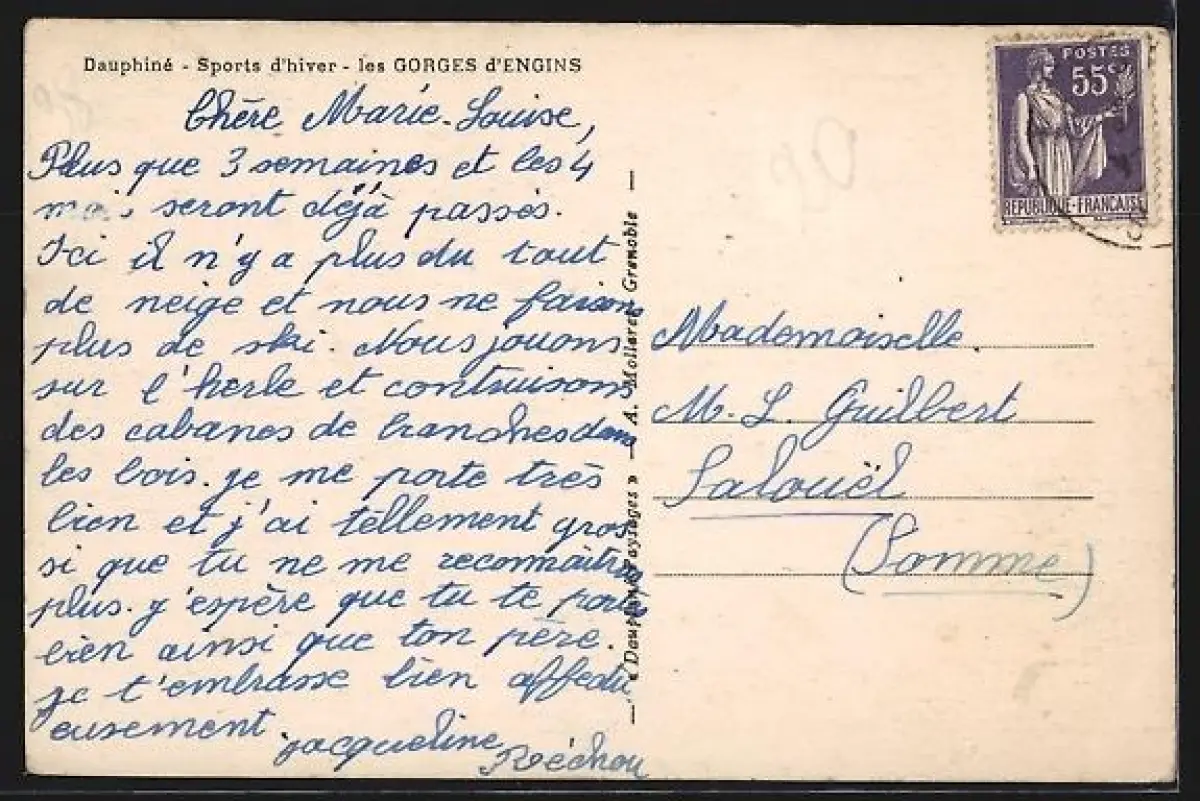 Dauphiné - Sports d'hiver - les GORGES d'ENGINS
Chère Marie-Louise,
Plus que 3 semaines et les 4
mois seront déjà passés.
Ici il n'y a plus du tout
de neige et nous ne faisons
plus de ski. Nous jouons
sur l'herbe et contruisons
des cabanes de branches dans
les bois. je me porte très
bien et j'ai tellement gros
si que tu ne me reconnaîtras
plus. j'espère que tu te portes
bien ainsi que ton père.
je t'embrasse bien affectu
eusement.
jacqueline
Réchou
— « Dauphiné Paysages » — A. Mollaret, Grenoble —
POSTES
55c
REPUBLIQUE-FRANCAISE
Mademoiselle.
M. L. Guilbert
Salouël
(Somme)